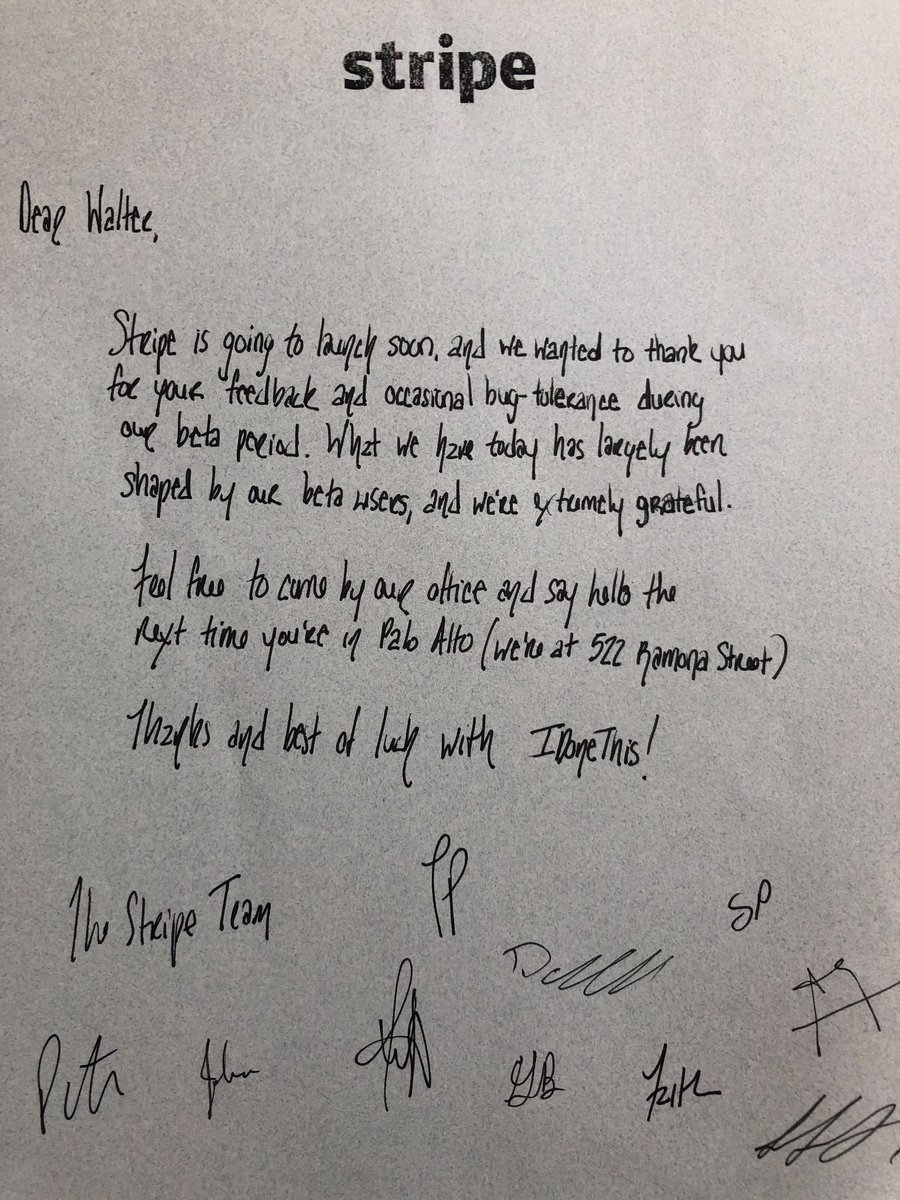 stripe
Dear Walter,
Stripe is going to launch soon, and we wanted to thank you
for your feedback and occasional bug-tolerance during
our beta period. What we have today has largely been
shaped by our beta users, and we're extremely grateful.
Feel free to come by our office and say hello the
next time you're in Palo Alto (we're at 522 Ramona Street)
Thanks and best of luck with IDoneThis!
The Stripe Team
SP
John